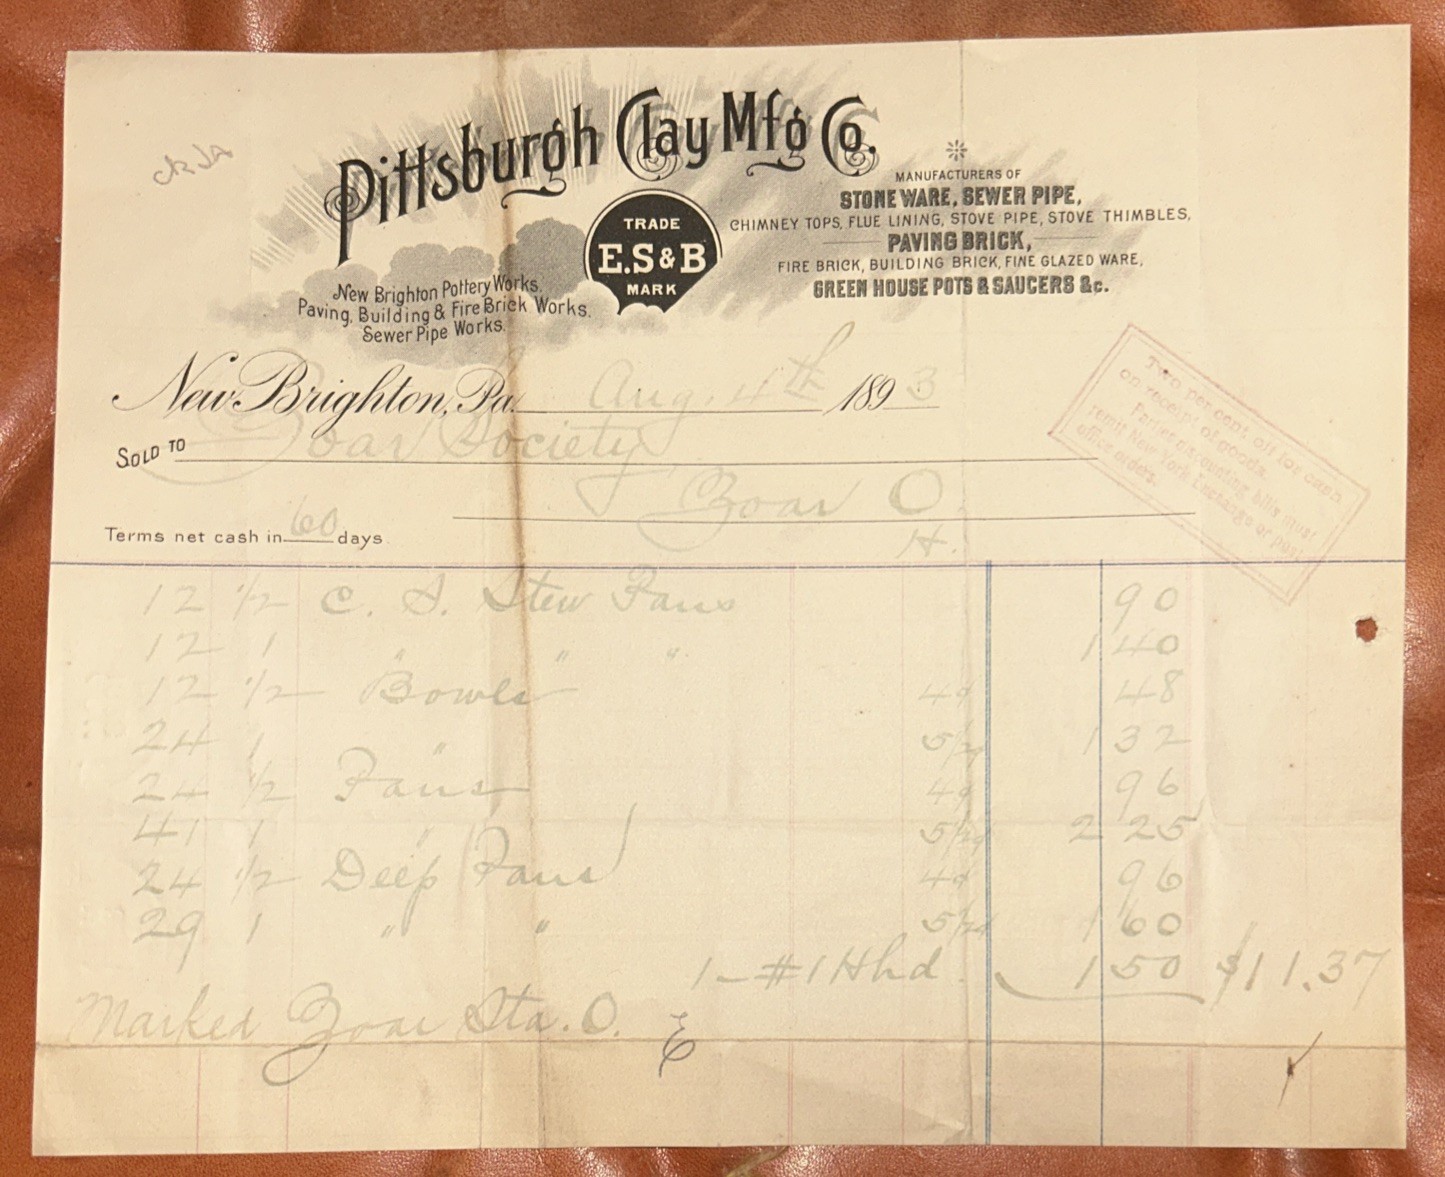 Pittsburgh Clay Mfg Co.
TRADE
E.S & B
MARK
New Brighton Pottery Works.
Paving, Building & Fire Brick Works.
Sewer Pipe Works.
MANUFACTURERS OF
STONE WARE, SEWER PIPE,
CHIMNEY TOPS, FLUE LINING, STOVE PIPE, STOVE THIMBLES,
PAVING BRICK,
FIRE BRICK, BUILDING BRICK, FINE GLAZED WARE,
GREEN HOUSE POTS & SAUCERS &c.
New Brighton, Pa. Aug. 4th 1893
SOLD TO Zoar Society
Zoar O.
Terms net cash in 60 days.
Two per cent off for cash
on receipt of goods.
Parties discounting bills must
remit New York Exchange or post
office orders.
12 1/2 C. S. Stew Pans 90
12 1 " " " 1 40
12 1/2 Bowls 4¢ 48
24 1 " 5 1/2¢ 1 32
24 1/2 Pans 4¢ 96
41 1 " 5 1/2¢ 2 25
24 1/2 Deep Pans 4¢ 96
29 1 " " 5 1/2¢ 1 60
1 - #1 Hhd. 1 50 $11.37
Marked Zoar Sta. O.